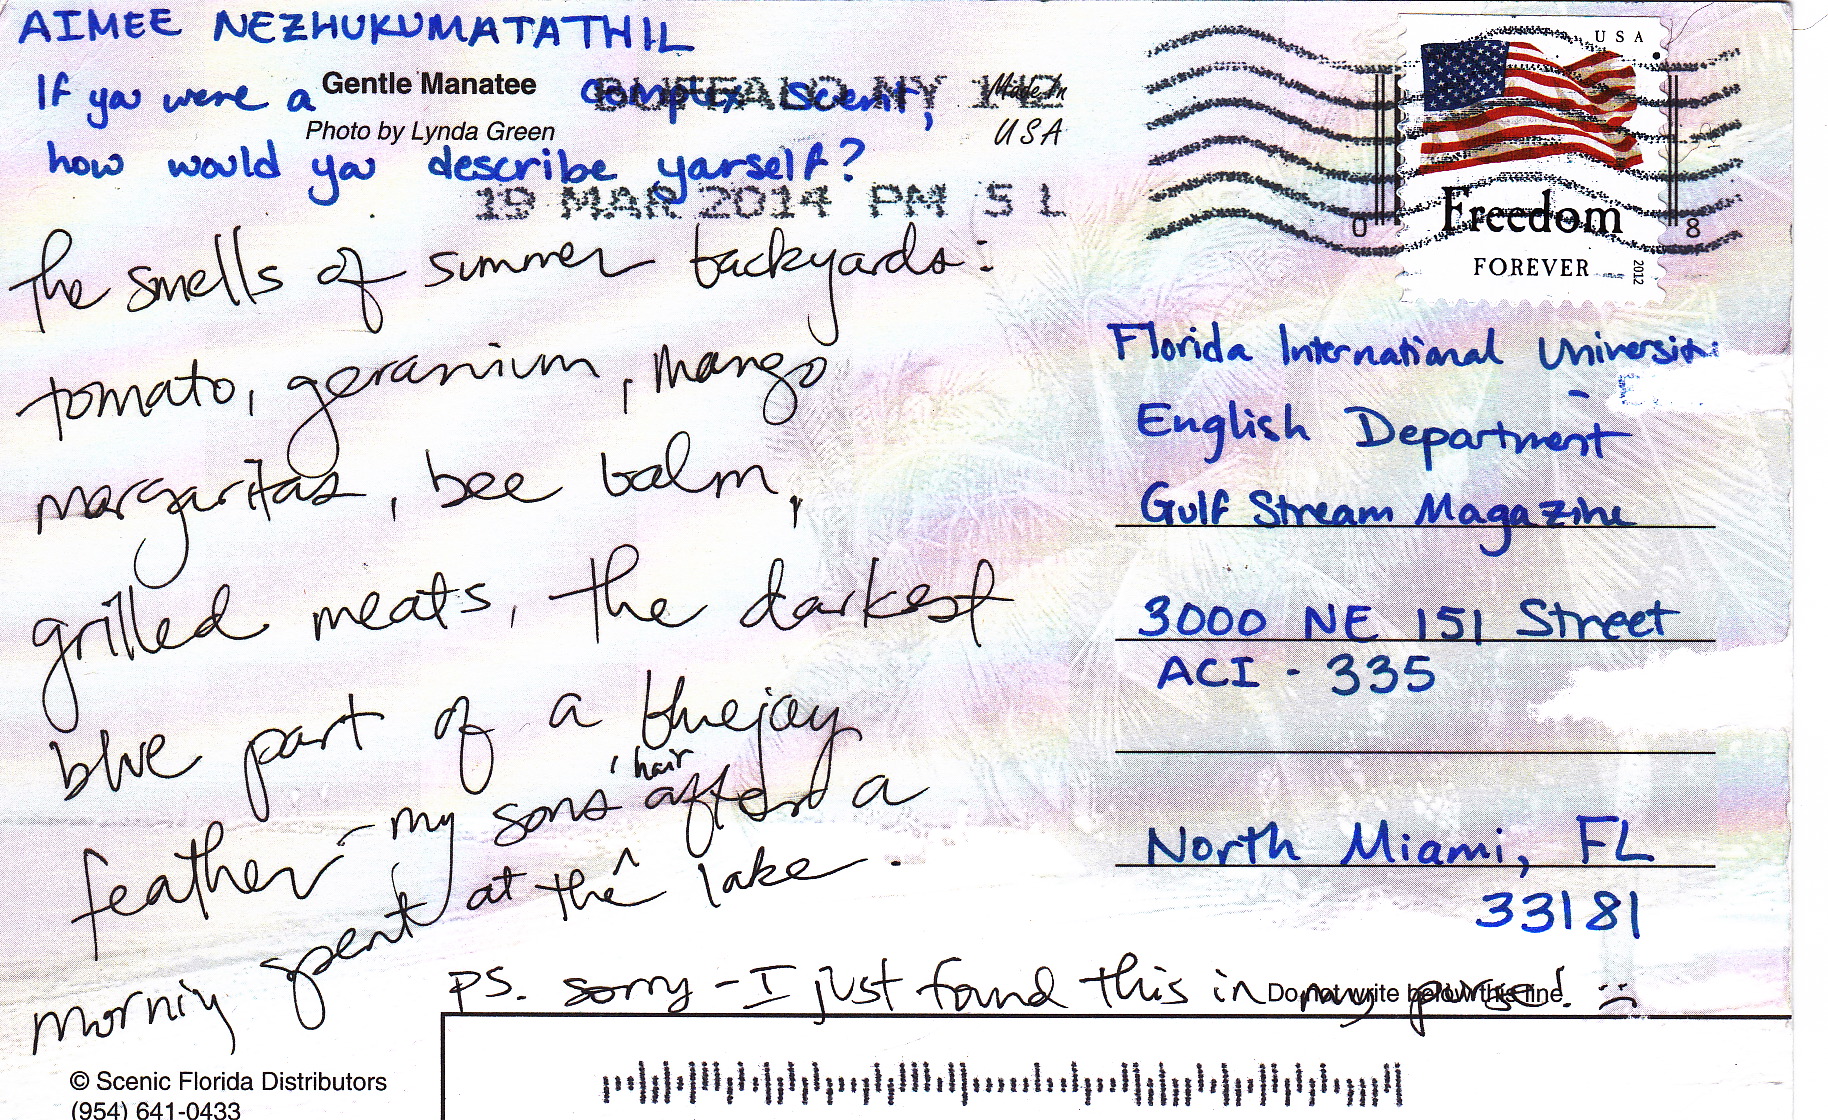 AIMEE NEZHUKUMATATHIL
If you were a complex scent,
how would you describe yarself?
Gentle Manatee
Photo by Lynda Green
Made in
USA
BUFFALO NY 142
19 MAR 2014 PM 5 L
USA
Freedom
FOREVER
2012
0 8
the smells of summer backyards:
tomato, geranium, mango
margaritas, bee balm,
grilled meats, the darkest
blue part of a bluejay
feather - my sons' hair after a
morning spent at the lake.
PS. sorry - I just found this in my purse! :(
Florida International University
English Department
Gulf Stream Magazine
3000 NE 151 Street
ACI - 335
North Miami, FL
33181
Do not write below this line
© Scenic Florida Distributors
(954) 641-0433